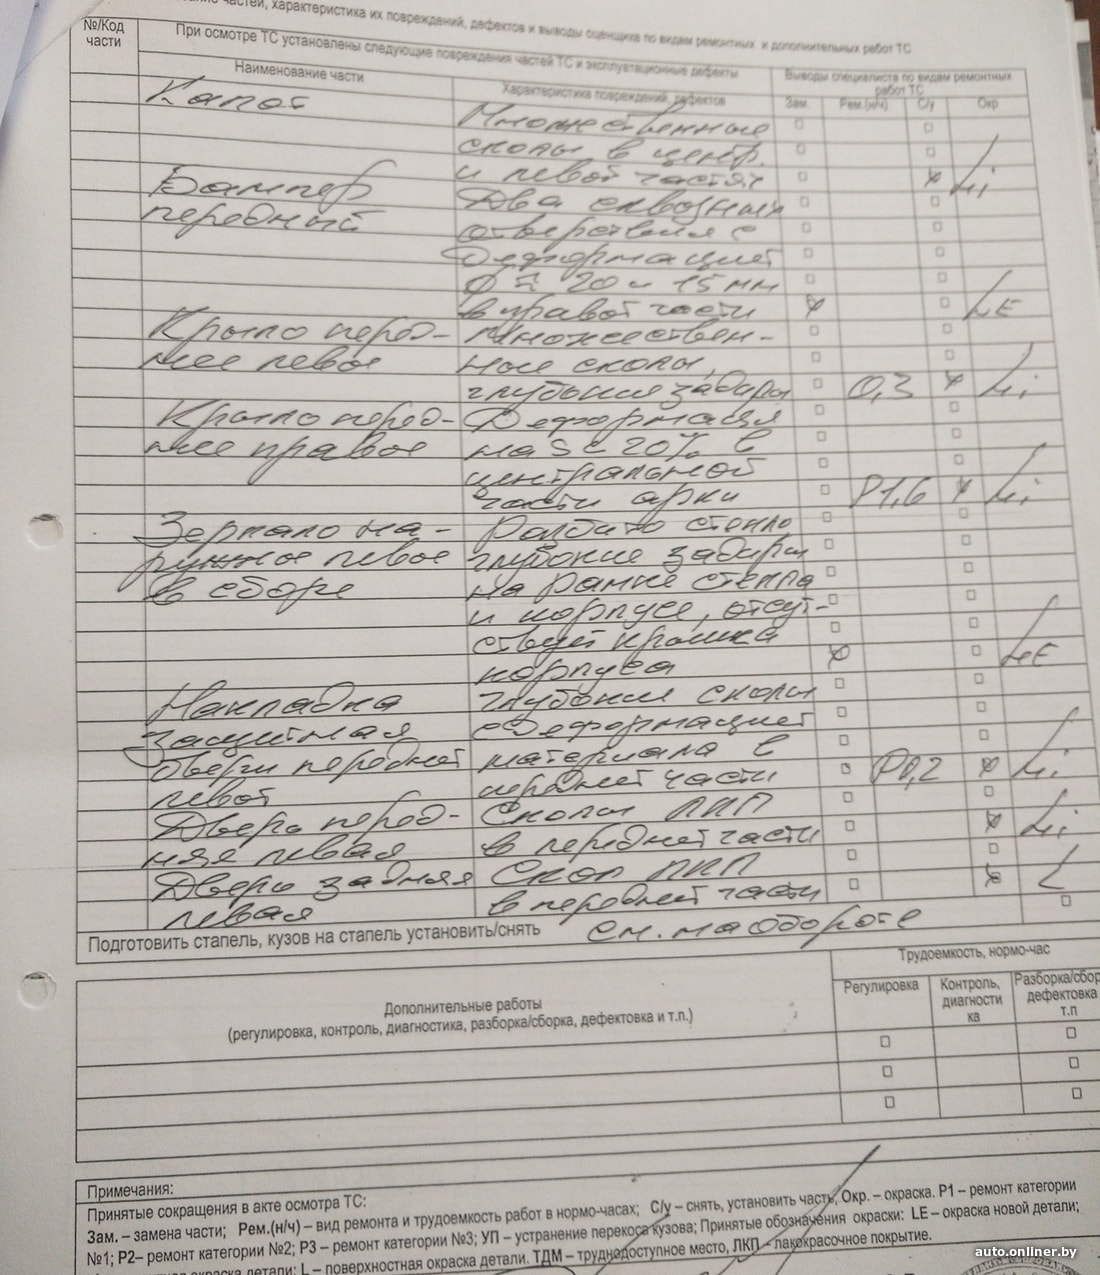 частей, характеристика их повреждений, дефектов и выводы оценщика по видам ремонтных и дополнительных работ ТС
№/Код части
При осмотре ТС установлены следующие повреждения частей ТС и эксплуатационные дефекты
Выводы специалиста по видам ремонтных работ ТС
Наименование части
Характеристика повреждений, дефектов
Зам.
Рем.(н/ч)
С/у
Окр
Капот
Множественные
сколы в центр.
и левой частях
Li
Бампер
Два сквозных
передний
отверстия с
деформацией
20 и 15 мм
в правой части
LE
Крыло перед-
множествен-
нее левое
ные сколы,
глубокие задиры
0,3
Li
Крыло перед-
Деформация
нее правое
на S ≤ 20% в
центральной
части арки
Р1,6
Li
Зеркало на-
Разбито стекло
ружное левое
глубокие задиры
в сборе
на рамке стекла
и корпусе, отсут-
ствует крышка
корпуса
LE
Накладка
глубокие сколы
защитная
с деформацией
двери передней
материала в
левой
передней части
Li
Дверь перед-
Сколы ЛКП
няя левая
в передней части
Li
Дверь задняя
Скол ЛКП
левая
в передней части
L
Подготовить стапель, кузов на стапель установить/снять
см. на обороте
Дополнительные работы
(регулировка, контроль, диагностика, разборка/сборка, дефектовка и т.п.)
Трудоемкость, нормо-час
Регулировка
Контроль, диагности ка
Разборка/сбор дефектовка т.п
Примечания:
Принятые сокращения в акте осмотра ТС:
Зам. – замена части; Рем.(н/ч) – вид ремонта и трудоемкость работ в нормо-часах; С/у – снять, установить часть, Окр. – окраска. Р1 – ремонт категории
№1; Р2– ремонт категории №2; Р3 – ремонт категории №3; УП – устранение перекоса кузова; Принятые обозначения окраски: LE – окраска новой детали;
окраска детали; L – поверхностная окраска детали. ТДМ – труднодоступное место, ЛКП – лакокрасочное покрытие.
auto.onliner.by